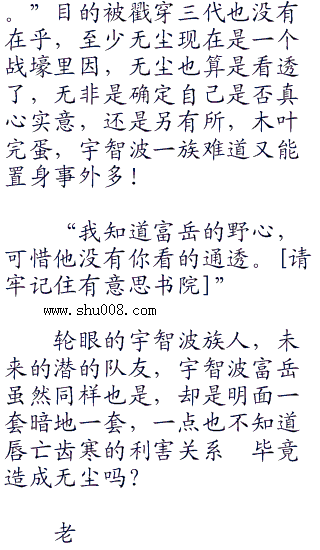 。”目的被戳穿三代也没有
在乎，至少无尘现在是一个
战壕里因，无尘也算是看透
了，无非是确定自己是否真
心实意，还是另有所，木叶
完蛋，宇智波一族难道又能
置身事外多！
“我知道富岳的野心，
可惜他没有你看的通透。[请
牢记住有意思书院]”
www.shu008.com
轮眼的宇智波族人，未
来的潜的队友，宇智波富岳
虽然同样也是，却是明面一
套暗地一套，一点也不知道
唇亡齿寒的利害关系　毕竟
造成无尘吗？
老